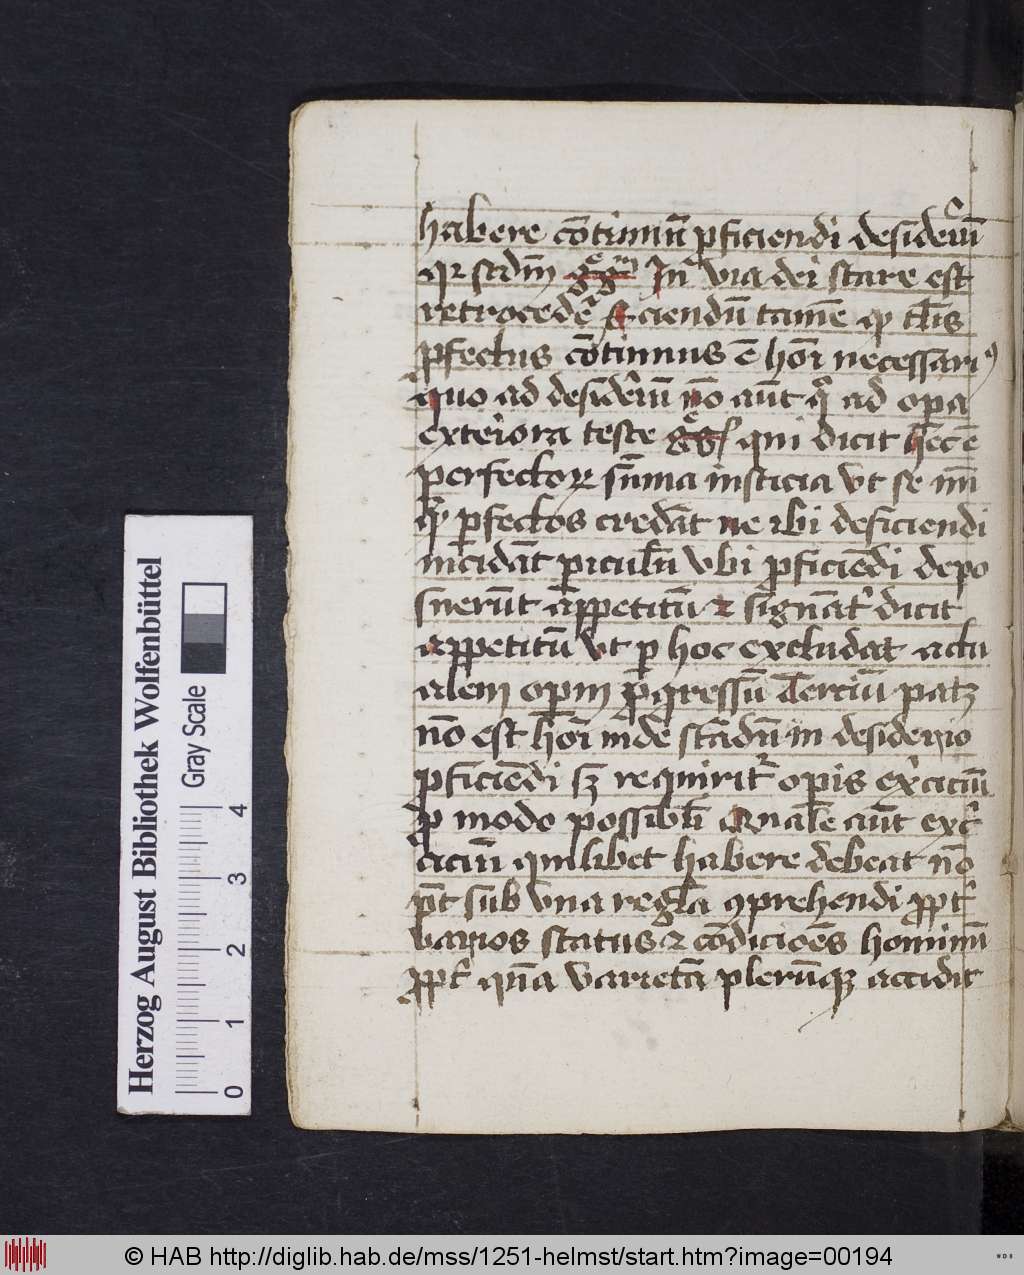 habere cōtinuū ꝓficiendi desideriū
qꝛ scdm̄ gͤgʳm In via dei stare est
retrocedēˀ Sciendū tamē ꝙ tʰis
ꝓfectus cōtinuus ē hoī necessariꝰ
quo ad desideriū nō aūt qͣ ad opa
exteriora teste gͤg qui dicit hec ē
perfectoꝝ sūma iusticia vt se nū
ꝙ̄ ꝑfectos credāt ne ibi deficiendi
incidāt ꝑiculū vbi ꝓficiēdi depo
suerūt appetitū ⁊ signāt dicit
appetitū vt ꝑ hoc excludat actu
alem opm ꝓgressū Terciū patꝫ
nō est hoī inde stādū in desiderio
ꝓficiēdi sꝫ requirit opis exˀciciū
ꝓ modo possibli Quale aūt exˀ
ciciū quilibet habere debeat nō
pt̄ sub vna regl̄a ꝯprehendi ꝓpt
varios status ⁊ cōdicioēs hominū
ꝓpt quā varietā plerūqꝫ accidit
Herzog August Bibliothek Wolfenbüttel
Gray Scale
0 1 2 3 4
© HAB http://diglib.hab.de/mss/1251-helmst/start.htm?image=00194